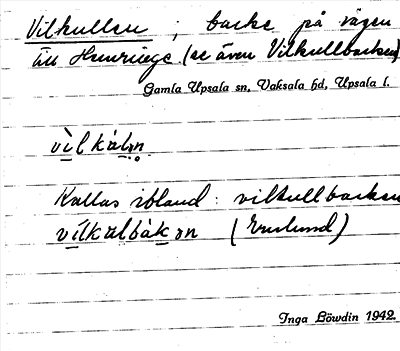 Vilkullen ; backe på vägen
till (se även Vilkullbacken)
Gamla Upsala sn, Vaksala hd, Upsala l.
vìlkàlən
Kallas ibland : vilkullbacken
vìlkəlbàkən (Enlund)
Inga Löwdin 1942.